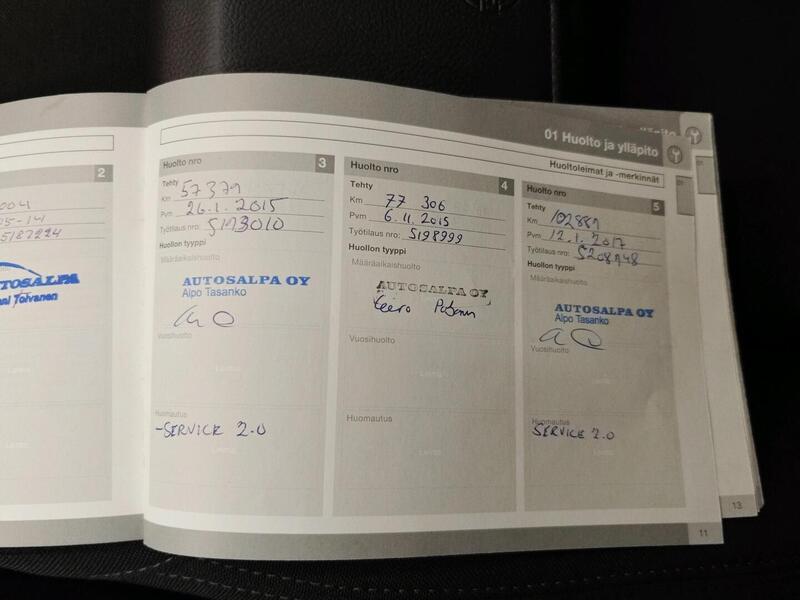 01 Huolto ja ylläpito
Huoltoleimat ja -merkinnät
2
004
05-14
5187224
TOSALPA
Toivanen
Huolto nro 3
Tehty
Km 57371
Pvm 26.1.2015
Työtilaus nro: 5193010
Huollon tyyppi
Määräaikaishuolto
AUTOSALPA OY
Aipo Tasanko
Vuosihuolto
Leima
Huomautus
-SERVICE 2.0
Leima
Huolto nro 4
Tehty
Km 77 306
Pvm 6.11.2015
Työtilaus nro: 5198999
Huollon tyyppi
Määräaikaishuolto
AUTOSALPA OY
Eero
Vuosihuolto
Leima
Huomautus
Leima
Huolto nro 5
Tehty
Km 102881
Pvm 12.1.2017
Työtilaus nro: 5208148
Huollon tyyppi
Määräaikaishuolto
AUTOSALPA OY
Aipo Tasanko
Vuosihuolto
Leima
Huomautus
SERVICE 2.0
Leima
11
13